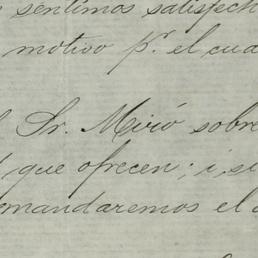 sentimos satisfech
motivo pr. el cua
Sr. Miró sobre
que ofrecen; i, si
mandaremos el